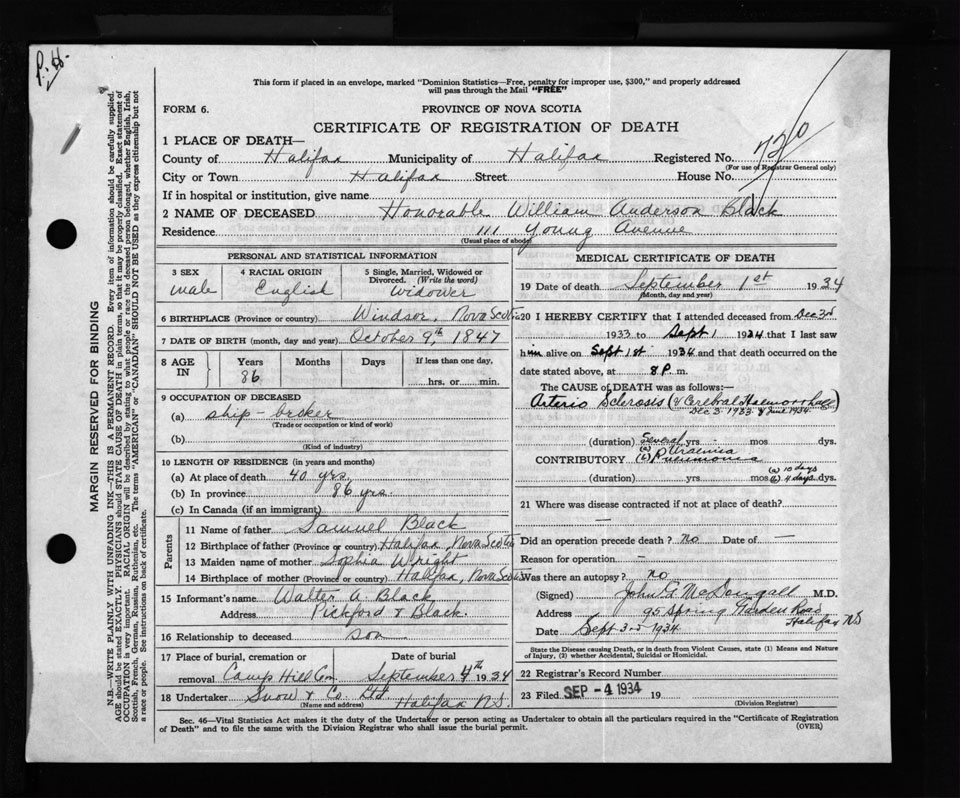 P. H.
This form if placed in an envelope, marked "Dominion Statistics—Free, penalty for improper use, $300," and properly addressed
will pass through the Mail "FREE"
FORM 6.
PROVINCE OF NOVA SCOTIA
CERTIFICATE OF REGISTRATION OF DEATH
720
1 PLACE OF DEATH—
County of Halifax Municipality of Halifax Registered No.
(For use of Registrar General only)
City or Town Halifax Street House No.
If in hospital or institution, give name
2 NAME OF DECEASED Honorable William Anderson Black
Residence 111 Young Avenue
(Usual place of abode)
PERSONAL AND STATISTICAL INFORMATION
3 SEX 4 RACIAL ORIGIN 5 Single, Married, Widowed or
Divorced. (Write the word)
male English widower
6 BIRTHPLACE (Province or country) Windsor, Nova Scotia
7 DATE OF BIRTH (month, day and year) October 9th, 1847
8 AGE IN Years Months Days If less than one day,
86 hrs. or min.
9 OCCUPATION OF DECEASED
(a) ship-broker
(Trade or occupation or kind of work)
(b)
(Kind of industry)
10 LENGTH OF RESIDENCE (in years and months)
(a) At place of death 40 yrs.
(b) In province 86 yrs.
(c) In Canada (if an immigrant)
Parents
11 Name of father Samuel Black
12 Birthplace of father (Province or country) Halifax, Nova Scotia
13 Maiden name of mother Sophia Wright
14 Birthplace of mother (Province or country) Halifax, Nova Scotia
15 Informant's name Walter A. Black
Address Pickford & Black.
16 Relationship to deceased son
17 Place of burial, cremation or Date of burial
removal Camp Hill Cem. September 4th 1934
18 Undertaker Snow & Co. Ltd.
(Name and address) Halifax N.S.
MEDICAL CERTIFICATE OF DEATH
19 Date of death September 1st 1934
(Month, day and year)
20 I HEREBY CERTIFY that I attended deceased from Dec 3rd
1933 to Sept 1 1934 that I last saw
him alive on Sept 1st 1934 and that death occurred on the
date stated above, at 8 P. m.
The CAUSE OF DEATH was as follows:
Arterio Sclerosis (& Cerebral Haemorrhage)
Dec 3 1933 & June 1934
(duration) Several yrs - mos dys.
(a) Uraemia
CONTRIBUTORY (b) Pneumonia
(a) 10 days
(duration) yrs mos (b) 4 days dys.
21 Where was disease contracted if not at place of death?
—
Did an operation precede death? no Date of —
Reason for operation —
Was there an autopsy? no
(Signed) John G. McDougall M.D.
Address 95 Spring Garden Road
Halifax NS
Date Sept 3rd 1934
State the Disease causing Death, or in death from Violent Causes, state (1) Means and Nature
of Injury, (2) whether Accidental, Suicidal or Homicidal.
22 Registrar's Record Number
23 Filed SEP - 4 1934 19
(Division Registrar)
Sec. 46—Vital Statistics Act makes it the duty of the Undertaker or person acting as Undertaker to obtain all the particulars required in the "Certificate of Registration
of Death" and to file the same with the Division Registrar who shall issue the burial permit. (OVER)
MARGIN RESERVED FOR BINDING
N.B.—WRITE PLAINLY WITH UNFADING INK—THIS IS A PERMANENT RECORD. Every item of information should be carefully supplied.
AGE should be stated EXACTLY. PHYSICIANS should STATE CAUSE OF DEATH in plain terms, so that it may be properly classified. Exact statement of
OCCUPATION is very important. RACIAL ORIGIN will be described by stating to what people or race the deceased person belonged, whether English, Irish,
Scottish, French, German, Russian, Ruthenian, etc. The terms "AMERICAN" or "CANADIAN" SHOULD NOT BE USED as they express citizenship but not
a race or people. See instructions on back of certificate.